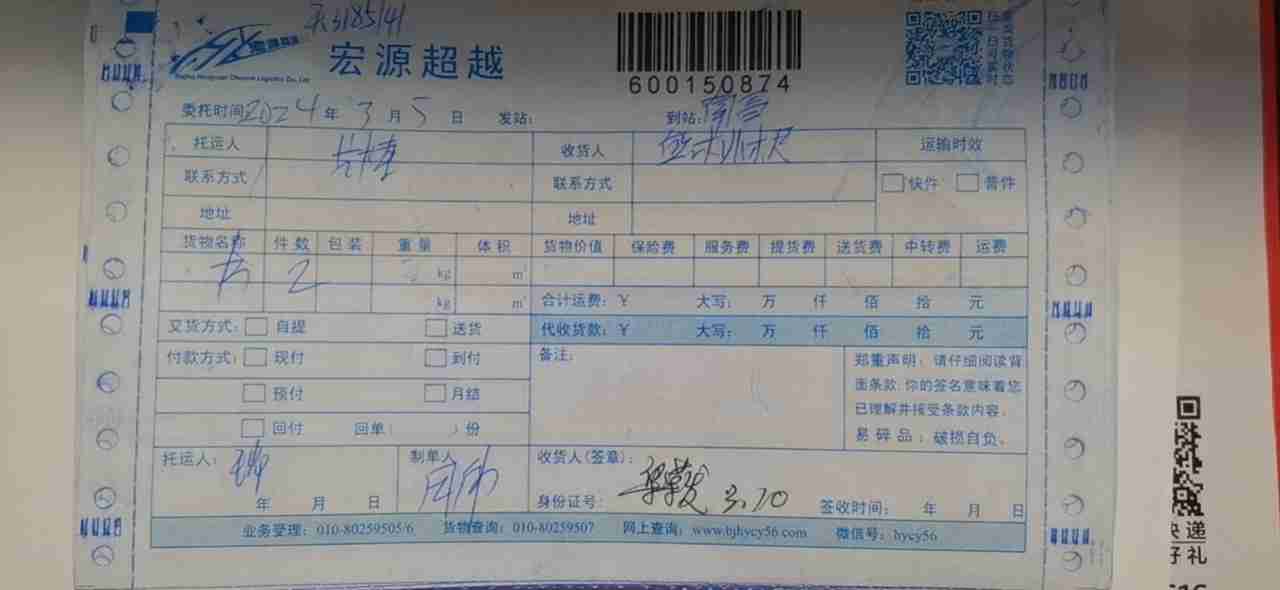 天3185141
宏源超越
600150874
委托时间2024年3月5日 发站: 到站:南宫
托运人 收货人 运输时效
联系方式 联系方式 快件 普件
地址 地址
货物名称 件数 包装 重量 体积 货物价值 保险费 服务费 提货费 送货费 中转费 运费
2 kg m³
kg m³ 合计运费:¥ 大写: 万 仟 佰 拾 元
交货方式: 自提 送货 代收货款:¥ 大写: 万 仟 佰 拾 元
付款方式: 现付 到付 备注:
预付 月结
回付 回单( )份
郑重声明:请仔细阅读背
面条款,你的签名意味着您
已理解并接受条款内容。
易碎品:破损自负。
托运人: 制单人 收货人(签章):
年 月 日 身份证号: 3.10 签收时间: 年 月 日
业务受理:010-80259505/6 货物查询:010-80259507 网上查询:www.bjhycy56.com 微信号:hycy56
快递
好礼